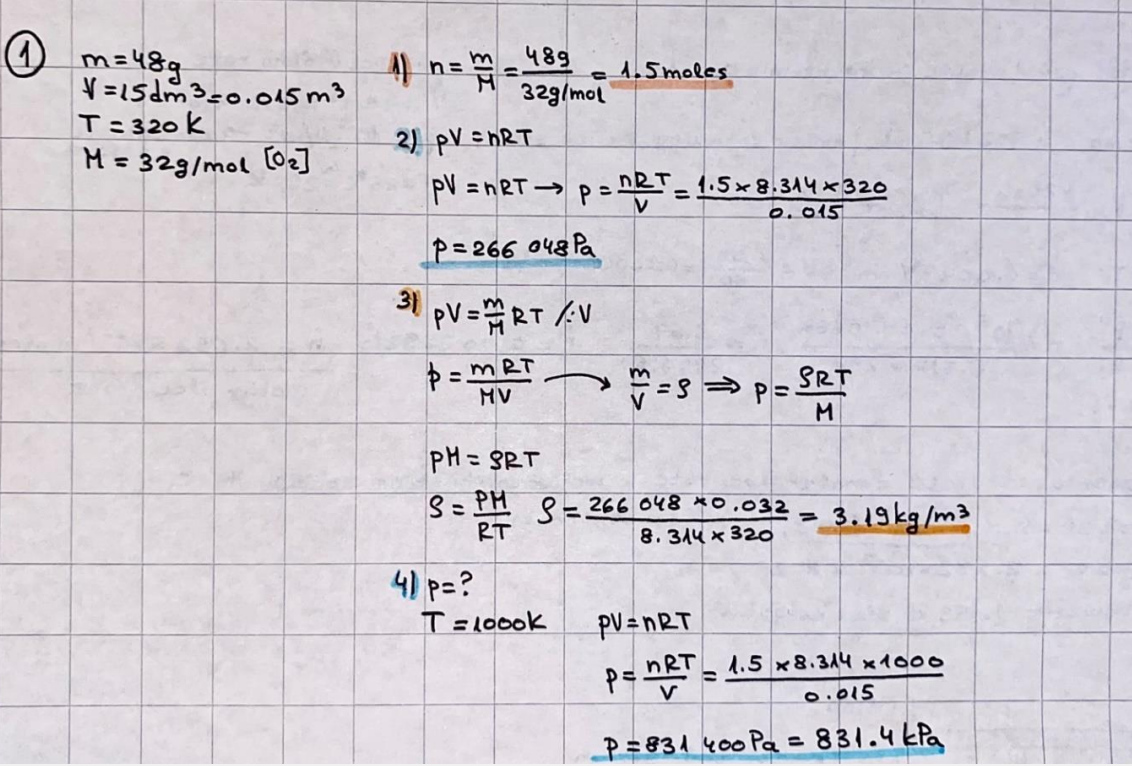 ① m=48g
V=15dm³=0.015m³
T=320K
M=32g/mol [O₂]
1) n=m/M=48g/32g/mol=1.5moles
2) pV=nRT
pV=nRT→ p=nRT/V=1.5×8.314×320/0.015
p=266 048Pa
3) pV=m/M RT /:V
p=mRT/MV → m/V=ρ ⇒ p=ρRT/M
pM=ρRT
ρ=PM/RT ρ=266 048×0.032/8.314×320=3.19kg/m³
4) p=?
T=1000K pV=nRT
p=nRT/V=1.5×8.314×1000/0.015
p=831 400Pa=831.4kPa